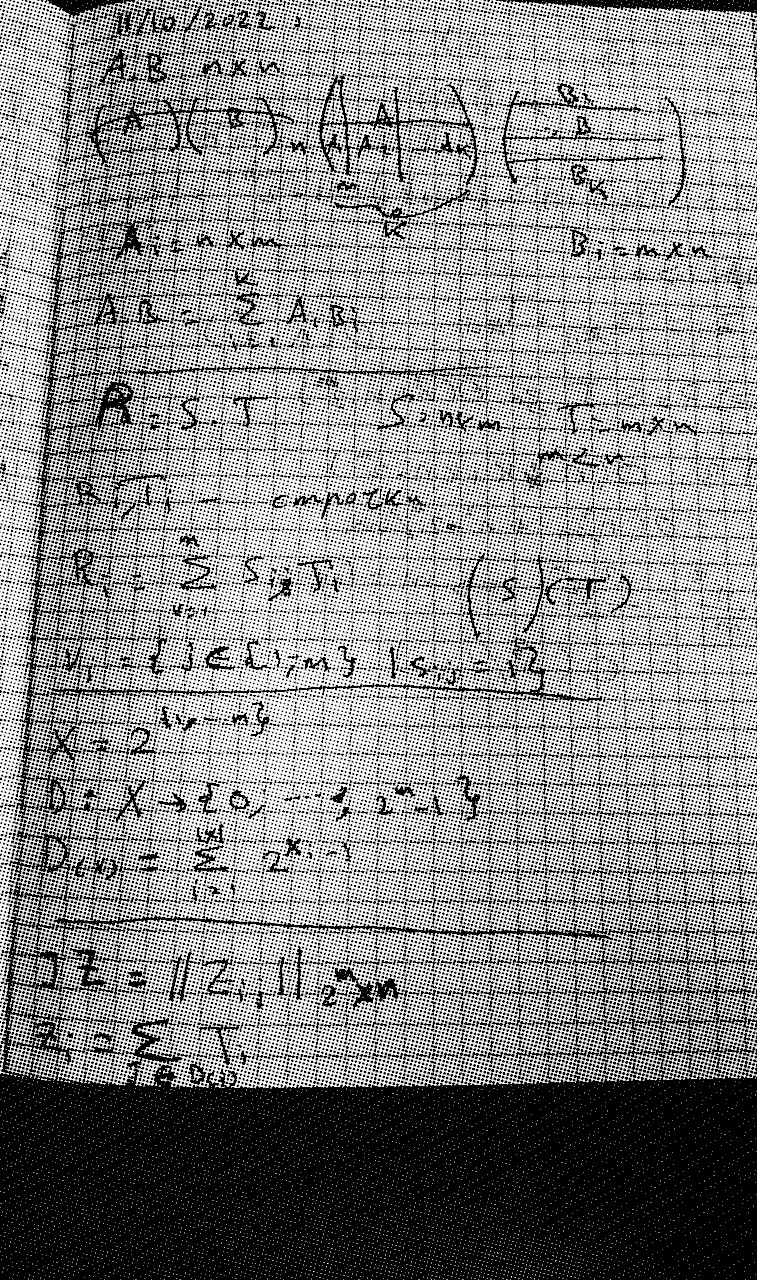 11/10/2022
A, B n×n
(A)(B) n (A A₁ | A₂ | ... Aₖ) (B₁ B Bₖ)
m
K
Aᵢ = n×m Bᵢ = m×n
A.B = Σ AᵢBᵢ
R = S.T S = n×m T = m×n
m < n
Rᵢ, Tᵢ — строчки
Rᵢ = Σ Sᵢⱼ Tᵢ (S)(T)
Vᵢ = {j ∈ {1;m} | sᵢⱼ = 1}
X = 2
D: X → {0, ..., 2ᵐ-1}
D(x) = Σ 2
] Z = ||Zᵢⱼ|| 2ᵐ×n
Zᵢ = Σ Tᵢ